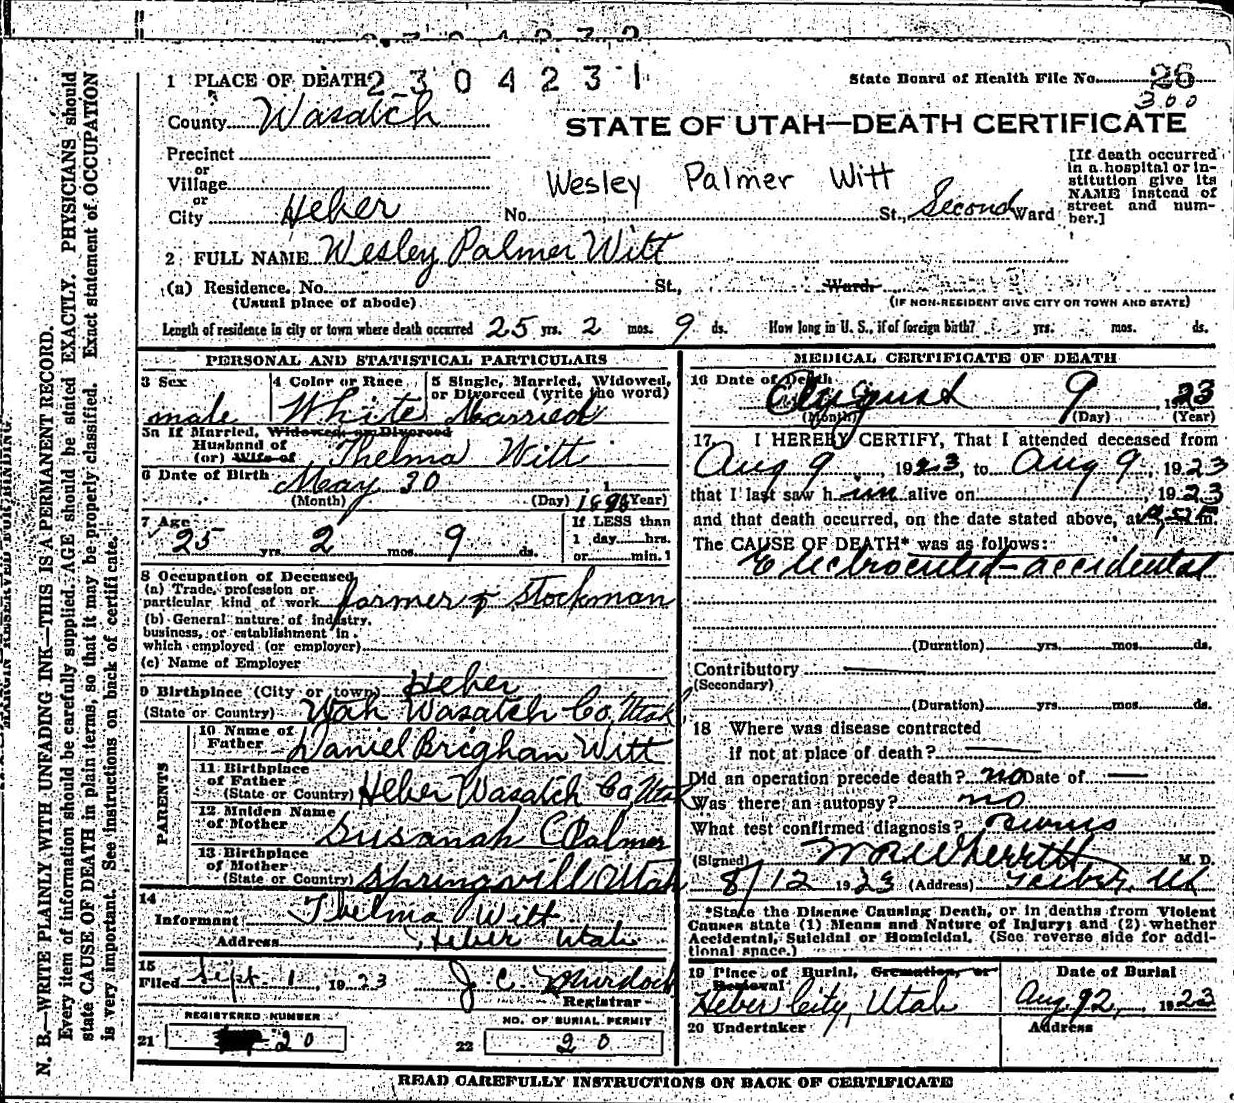 1 PLACE OF DEATH 2 3 0 4 2 3 1
State Board of Health File No. 26
300
County Wasatch
STATE OF UTAH—DEATH CERTIFICATE
Precinct
or
Village
or
City Heber No. St., Second Ward
Wesley Palmer Witt
[If death occurred in a hospital or institution give its NAME instead of street and number.]
2 FULL NAME Wesley Palmer Witt
(a) Residence. No. St., Ward.
(Usual place of abode) (IF NON-RESIDENT GIVE CITY OR TOWN AND STATE)
Length of residence in city or town where death occurred 25 yrs. 2 mos. 9 ds. How long in U. S., if of foreign birth? yrs. mos. ds.
PERSONAL AND STATISTICAL PARTICULARS
3 Sex male
4 Color or Race White
5 Single, Married, Widowed, or Divorced (write the word) Married
5a If Married, Widowed, or Divorced
Husband of
(or) Wife of Thelma Witt
6 Date of Birth May 30, 1898
(Month) (Day) (Year)
7 Age 25 yrs. 2 mos. 9 ds.
If LESS than
1 day hrs.
or min.
8 Occupation of Deceased
(a) Trade, profession or
particular kind of work farmer & Stockman
(b) General nature of industry,
business, or establishment in
which employed (or employer)
(c) Name of Employer
9 Birthplace (City or town) Heber
(State or Country) Utah Wasatch Co, Utah
PARENTS
10 Name of Father Daniel Brigham Witt
11 Birthplace of Father (State or Country) Heber Wasatch Co, Utah
12 Maiden Name of Mother Susanah C Palmer
13 Birthplace of Mother (State or Country) Springvill Utah
14
Informant Thelma Witt
Address Heber Utah
15
Filed Sept. 1, 1923 J. C. Murdock
Registrar
REGISTERED NUMBER
21 20
NO. OF BURIAL PERMIT
22 20
MEDICAL CERTIFICATE OF DEATH
16 Date of Death August 9 1923
(Month) (Day) (Year)
17 I HEREBY CERTIFY, That I attended deceased from
Aug 9, 1923, to Aug 9, 1923
that I last saw him alive on , 1923
and that death occurred, on the date stated above, at m.
The CAUSE OF DEATH* was as follows:
Electrocuted—accidental
(Duration) yrs. mos. ds.
Contributory
(Secondary)
(Duration) yrs. mos. ds.
18 Where was disease contracted
if not at place of death?
Did an operation precede death? no Date of
Was there an autopsy? no
What test confirmed diagnosis?
(Signed) M. D.
8/12 1923 (Address) Heber, Ut
*State the Disease Causing Death, or in deaths from Violent
Causes state (1) Means and Nature of Injury; and (2) whether
Accidental, Suicidal or Homicidal. (See reverse side for additional space.)
19 Place of Burial, Cremation, or Removal
Heber City, Utah
Date of Burial
Aug. 12, 1923
20 Undertaker
Address
READ CAREFULLY INSTRUCTIONS ON BACK OF CERTIFICATE
MARGIN RESERVED FOR BINDING.
N. B.—WRITE PLAINLY WITH UNFADING INK—THIS IS A PERMANENT RECORD.
Every item of information should be carefully supplied. AGE should be stated EXACTLY. PHYSICIANS should
state CAUSE OF DEATH in plain terms, so that it may be properly classified. Exact statement of OCCUPATION
is very important. See instructions on back of certificate.